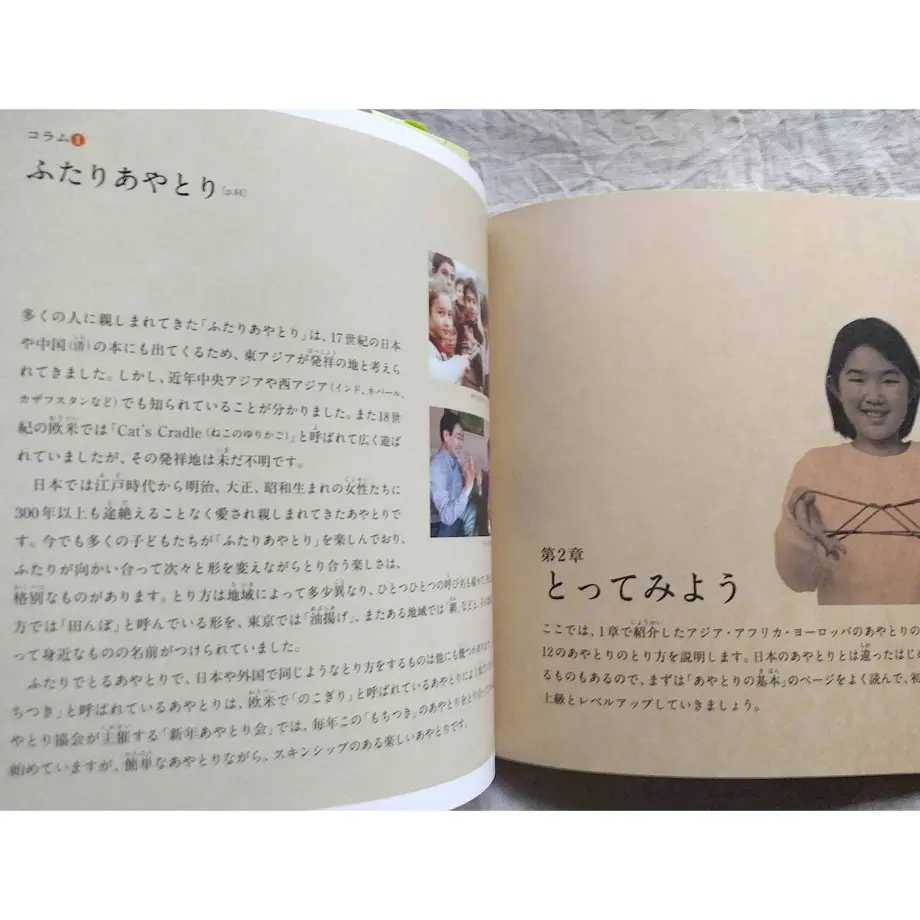 コラム1
ふたりあやとり
多くの人に親しまれてきた「ふたりあやとり」は、17世紀の日本
や中国(清)の本にも出てくるため、東アジアが発祥の地と考えら
れてきました。しかし、近年中央アジアや西アジア(インド、ネパール、
カザフスタンなど)でも知られていることが分かりました。また18世
紀の欧米では「Cat's Cradle(ねこのゆりかご)」と呼ばれて広く遊ば
れていましたが、その発祥地は未だ不明です。
日本では江戸時代から明治、大正、昭和生まれの女性たちに
300年以上も途絶えることなく愛され親しまれてきたあやとりで
す。今でも多くの子どもたちが「ふたりあやとり」を楽しんでおり、
ふたりが向かい合って次々と形を変えながらとり合う楽しさは、
格別なものがあります。とり方は地域によって多少異なり、ひとつひとつの呼び名も
方では「田んぼ」と呼んでいる形を、東京では「油揚げ」、またある地域では「網」などと、
って身近なものの名前がつけられていました。
ふたりでとるあやとりで、日本や外国で同じようなとり方をするものは他にも
ちつき」と呼ばれているあやとりは、欧米で「のこぎり」と呼ばれているあやとり
やとり協会が主催する「新年あやとり会」では、毎年この「もちつき」のあやとりを
始めていますが、簡単なあやとりながら、スキンシップのある楽しいあやとりです。
第2章
とってみよう
ここでは、1章で紹介したアジア・アフリカ・ヨーロッパのあやとりの
12のあやとりのとり方を説明します。日本のあやとりとは違ったはじめ
るものもあるので、まずは「あやとりの基本」のページをよく読んで、初
上級とレベルアップしていきましょう。